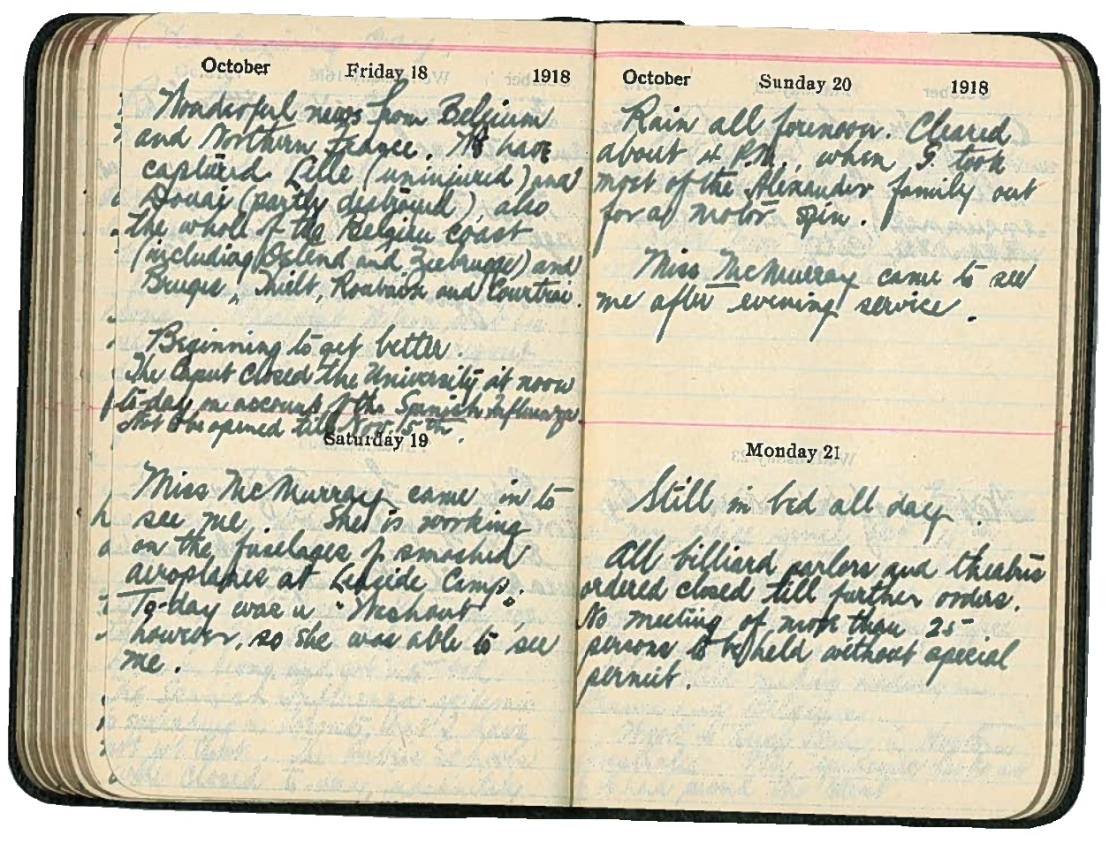 October Friday 18 1918
Wonderful news from Belgium
and Northern France. We have
captured Lille (uninjured) and
Douai (partly destroyed), also
the whole of the Belgian coast
(including Ostend and Zeebrugge) and
Bruges, Thielt, Roubaix and Courtrai.
Beginning to get better.
The Caput closed the University at noon
to-day on account of the Spanish Influenza
Not to be opened till Nov. 5th.
Saturday 19
Miss McMurray came in to
see me. She is working
on the fuselages of smashed
aeroplanes at Leaside Camp.
To-day was a "Washout"
however, so she was able to see
me.
October Sunday 20 1918
Rain all forenoon. Cleared
about 4 P.M., when S. took
most of the Alexander family out
for a motor spin.
Miss McMurray came to see
me after evening service.
Monday 21
Still in bed all day.
All billiard parlors and theatres
ordered closed till further orders.
No meeting of more than 25
persons to be held without special
permit.